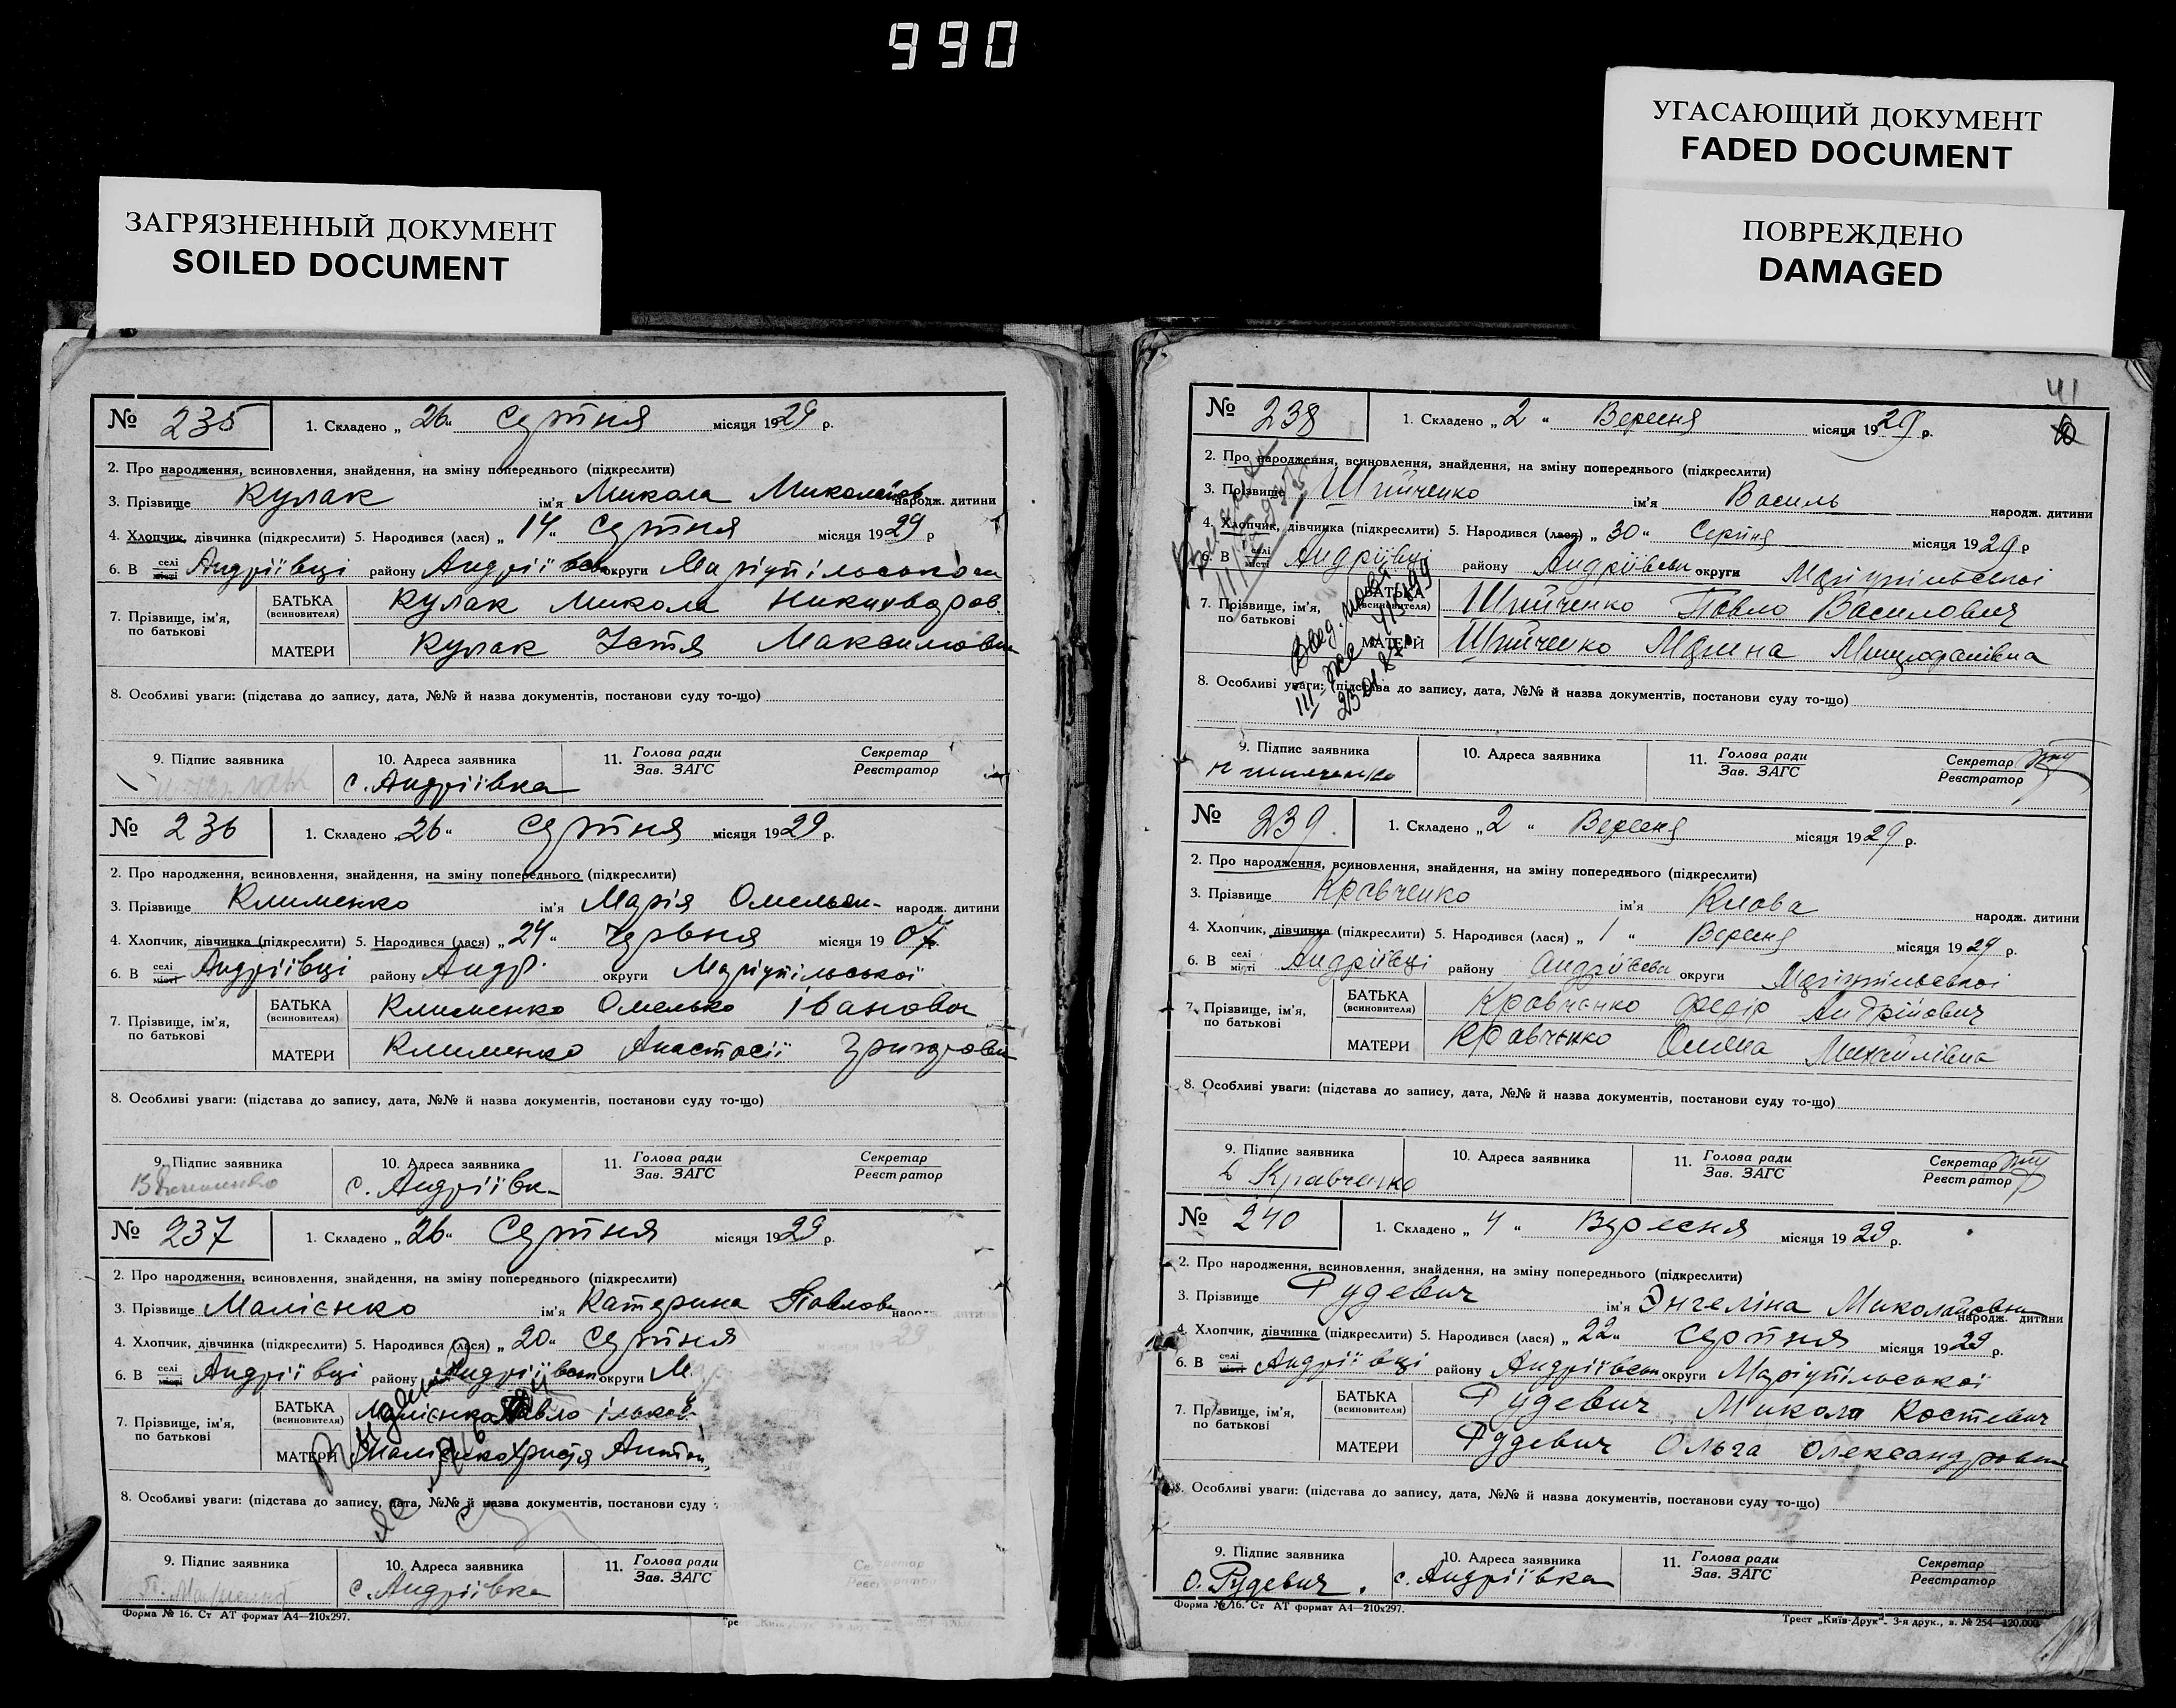 990
УГАСАЮЩИЙ ДОКУМЕНТ
FADED DOCUMENT
ПОВРЕЖДЕНО
DAMAGED
ЗАГРЯЗНЕННЫЙ ДОКУМЕНТ
SOILED DOCUMENT
№ 235 1. Складено „ 26 “ Серпня місяця 1929 р.
2. Про народження, всиновлення, знайдення, на зміну попереднього (підкреслити)
3. Прізвище Кулак ім'я Микола народж. дитини
4. Хлопчик, дівчинка (підкреслити) 5. Народився (лася) „ 14 “ Серпня місяця 1929 р
6. В селі місті Андріївці району округи
7. Прізвище, ім'я, по батькові
БАТЬКА (всиновителя) Кулак Микола
МАТЕРИ Кулак Устя
8. Особливі уваги: (підстава до запису, дата, №№ й назва документів, постанови суду то-що)
9. Підпис заявника 10. Адреса заявника 11. Голова ради Зав. ЗАГС Секретар Реєстратор
с. Андріївка
№ 236 1. Складено „ 26 “ Серпня місяця 1929 р.
2. Про народження, всиновлення, знайдення, на зміну попереднього (підкреслити)
3. Прізвище Клименко ім'я Марія народж. дитини
4. Хлопчик, дівчинка (підкреслити) 5. Народився (лася) „ 24 “ Червня місяця 1907 р.
6. В селі місті Андріївці району Андр. округи Маріупільської
7. Прізвище, ім'я, по батькові
БАТЬКА (всиновителя) Клименко Омелько Іванович
МАТЕРИ Клименко Анастасії
8. Особливі уваги: (підстава до запису, дата, №№ й назва документів, постанови суду то-що)
9. Підпис заявника 10. Адреса заявника 11. Голова ради Зав. ЗАГС Секретар Реєстратор
с. Андріївк
№ 237 1. Складено „ 26 “ Серпня місяця 1929 р.
2. Про народження, всиновлення, знайдення, на зміну попереднього (підкреслити)
3. Прізвище Малієнко ім'я Катерина
4. Хлопчик, дівчинка (підкреслити) 5. Народився (лася) „ 20 “ Серпня
6. В селі місті Андріївці району округи М.
7. Прізвище, ім'я, по батькові
БАТЬКА (всиновителя) Малієнко Павло
МАТЕРИ Малієнко
8. Особливі уваги: (підстава до запису, дата, №№ й назва документів, постанови суду
9. Підпис заявника 10. Адреса заявника 11. Голова ради Зав. ЗАГС
с. Андріївка
Форма № 16. Ст АТ формат А4—210х297.
41
№ 238 1. Складено „ 2 “ Вересня місяця 1929 р.
2. Про народження, всиновлення, знайдення, на зміну попереднього (підкреслити)
3. Прізвище ім'я Василь народж. дитини
4. Хлопчик, дівчинка (підкреслити) 5. Народився (лася) „ 30 “ Серпня місяця 1929 р
6. В селі місті Андріївці району округи Маріупільської
7. Прізвище, ім'я, по батькові
БАТЬКА (всиновителя) Павло Василович
МАТЕРИ
8. Особливі уваги: (підстава до запису, дата, №№ й назва документів, постанови суду то-що)
9. Підпис заявника 10. Адреса заявника 11. Голова ради Зав. ЗАГС Секретар Реєстратор
№ 239. 1. Складено „ 2 “ Вересня місяця 1929 р.
2. Про народження, всиновлення, знайдення, на зміну попереднього (підкреслити)
3. Прізвище Кравченко ім'я Клова народж. дитини
4. Хлопчик, дівчинка (підкреслити) 5. Народився (лася) „ 1 “ Вересня місяця 1929 р.
6. В селі місті Андріївці району округи Маріупільської
7. Прізвище, ім'я, по батькові
БАТЬКА (всиновителя) Кравченко Федір Андрійович
МАТЕРИ Кравченко Михайлівна
8. Особливі уваги: (підстава до запису, дата, №№ й назва документів, постанови суду то-що)
9. Підпис заявника 10. Адреса заявника 11. Голова ради Зав. ЗАГС Секретар Реєстратор
Кравченко
№ 240 1. Складено „ 4 “ Вересня місяця 1929 р.
2. Про народження, всиновлення, знайдення, на зміну попереднього (підкреслити)
3. Прізвище Рудевич ім'я Энгеліна Миколаївна народж. дитини
4. Хлопчик, дівчинка (підкреслити) 5. Народився (лася) „ 22 “ Серпня місяця 1929 р.
6. В селі місті Андріївці району округи Маріупільської
7. Прізвище, ім'я, по батькові
БАТЬКА (всиновителя) Рудевич Микола Костевич
МАТЕРИ Рудевич Ольга Олександровна
8. Особливі уваги: (підстава до запису, дата, №№ й назва документів, постанови суду то-що)
9. Підпис заявника 10. Адреса заявника 11. Голова ради Зав. ЗАГС Секретар Реєстратор
О. Рудевич. с. Андріївка
Форма № 16. Ст АТ формат А4—210х297.
Трест „Київ-Друк“. 3-я друк., з. № 254—120.000.